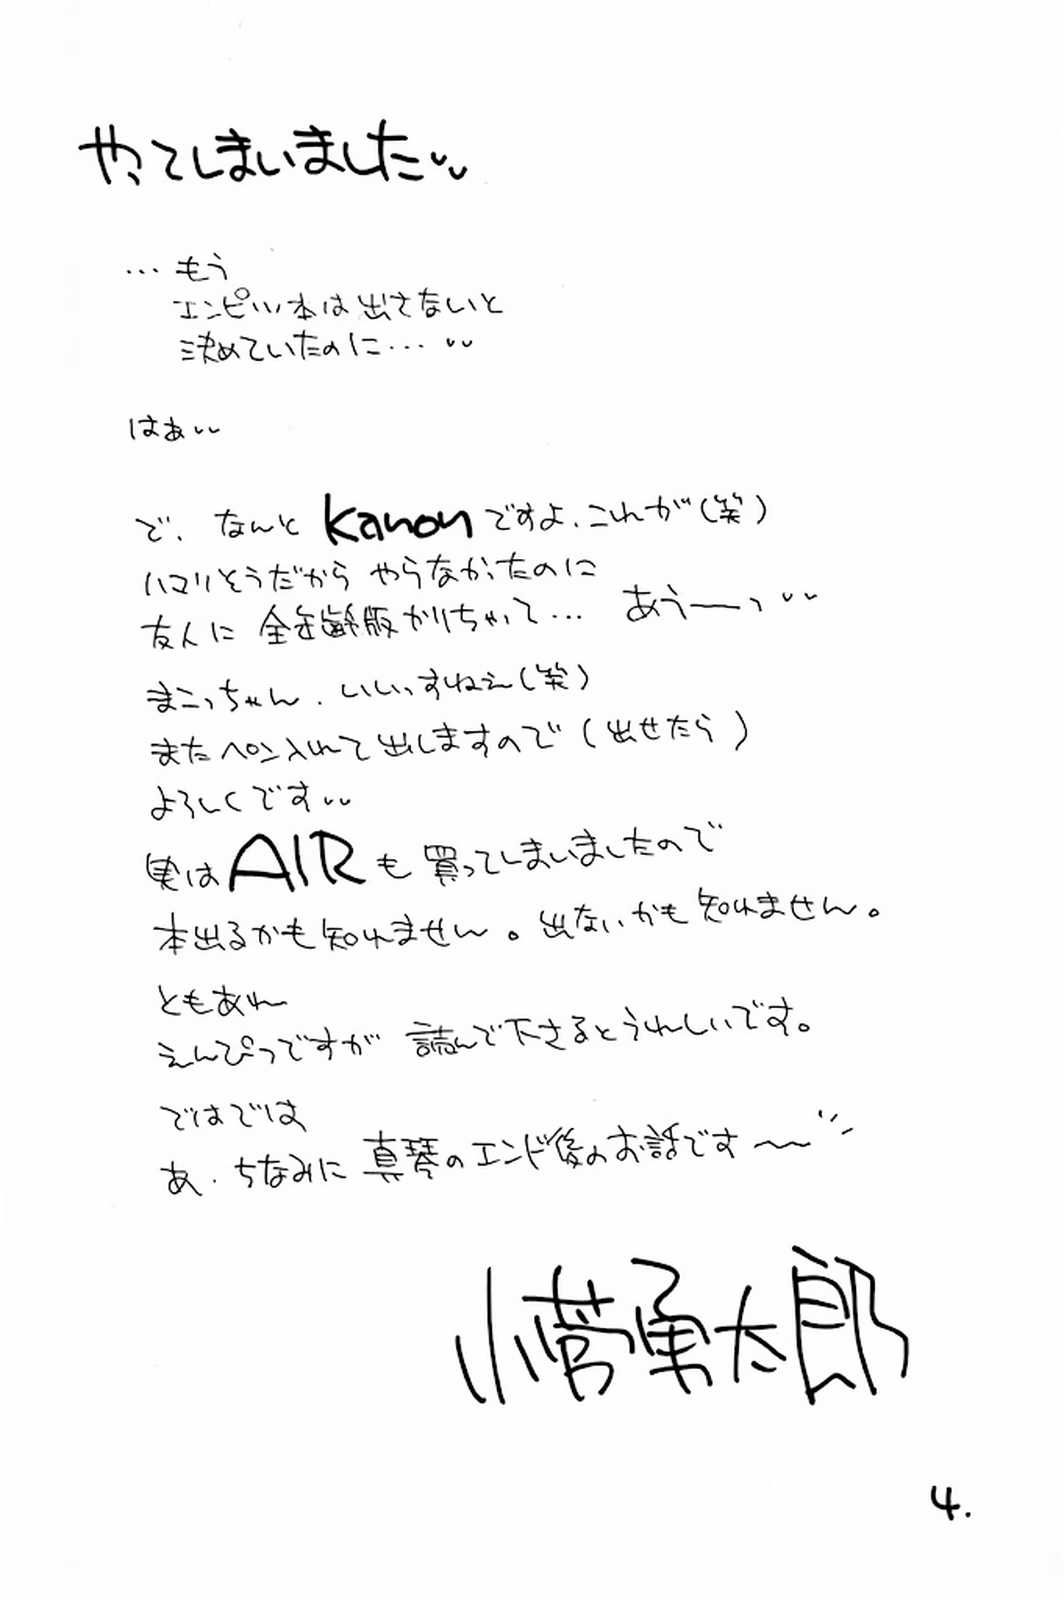 やってしまいました〃
…もう
エンピツ本は出さないと
決めていたのに…〃
はぁ〃
で、なんとKanonですよ、これが(笑)
ハマりそうだからやらなかったのに
友人に全年齢版かりちゃって… あうーっ〃
まこっちゃん、いいっすねえ(笑)
またペン入れて出しますので(出せたら)
よろしくです〃
実はAIRも買ってしまいましたので
本出るかも知れません。出ないかも知れません。
ともあれ
えんぴつですが読んで下さるとうれしいです。
ではでは
あ、ちなみに真琴のエンド後のお話です〜〃
小菅勇太郎
4.